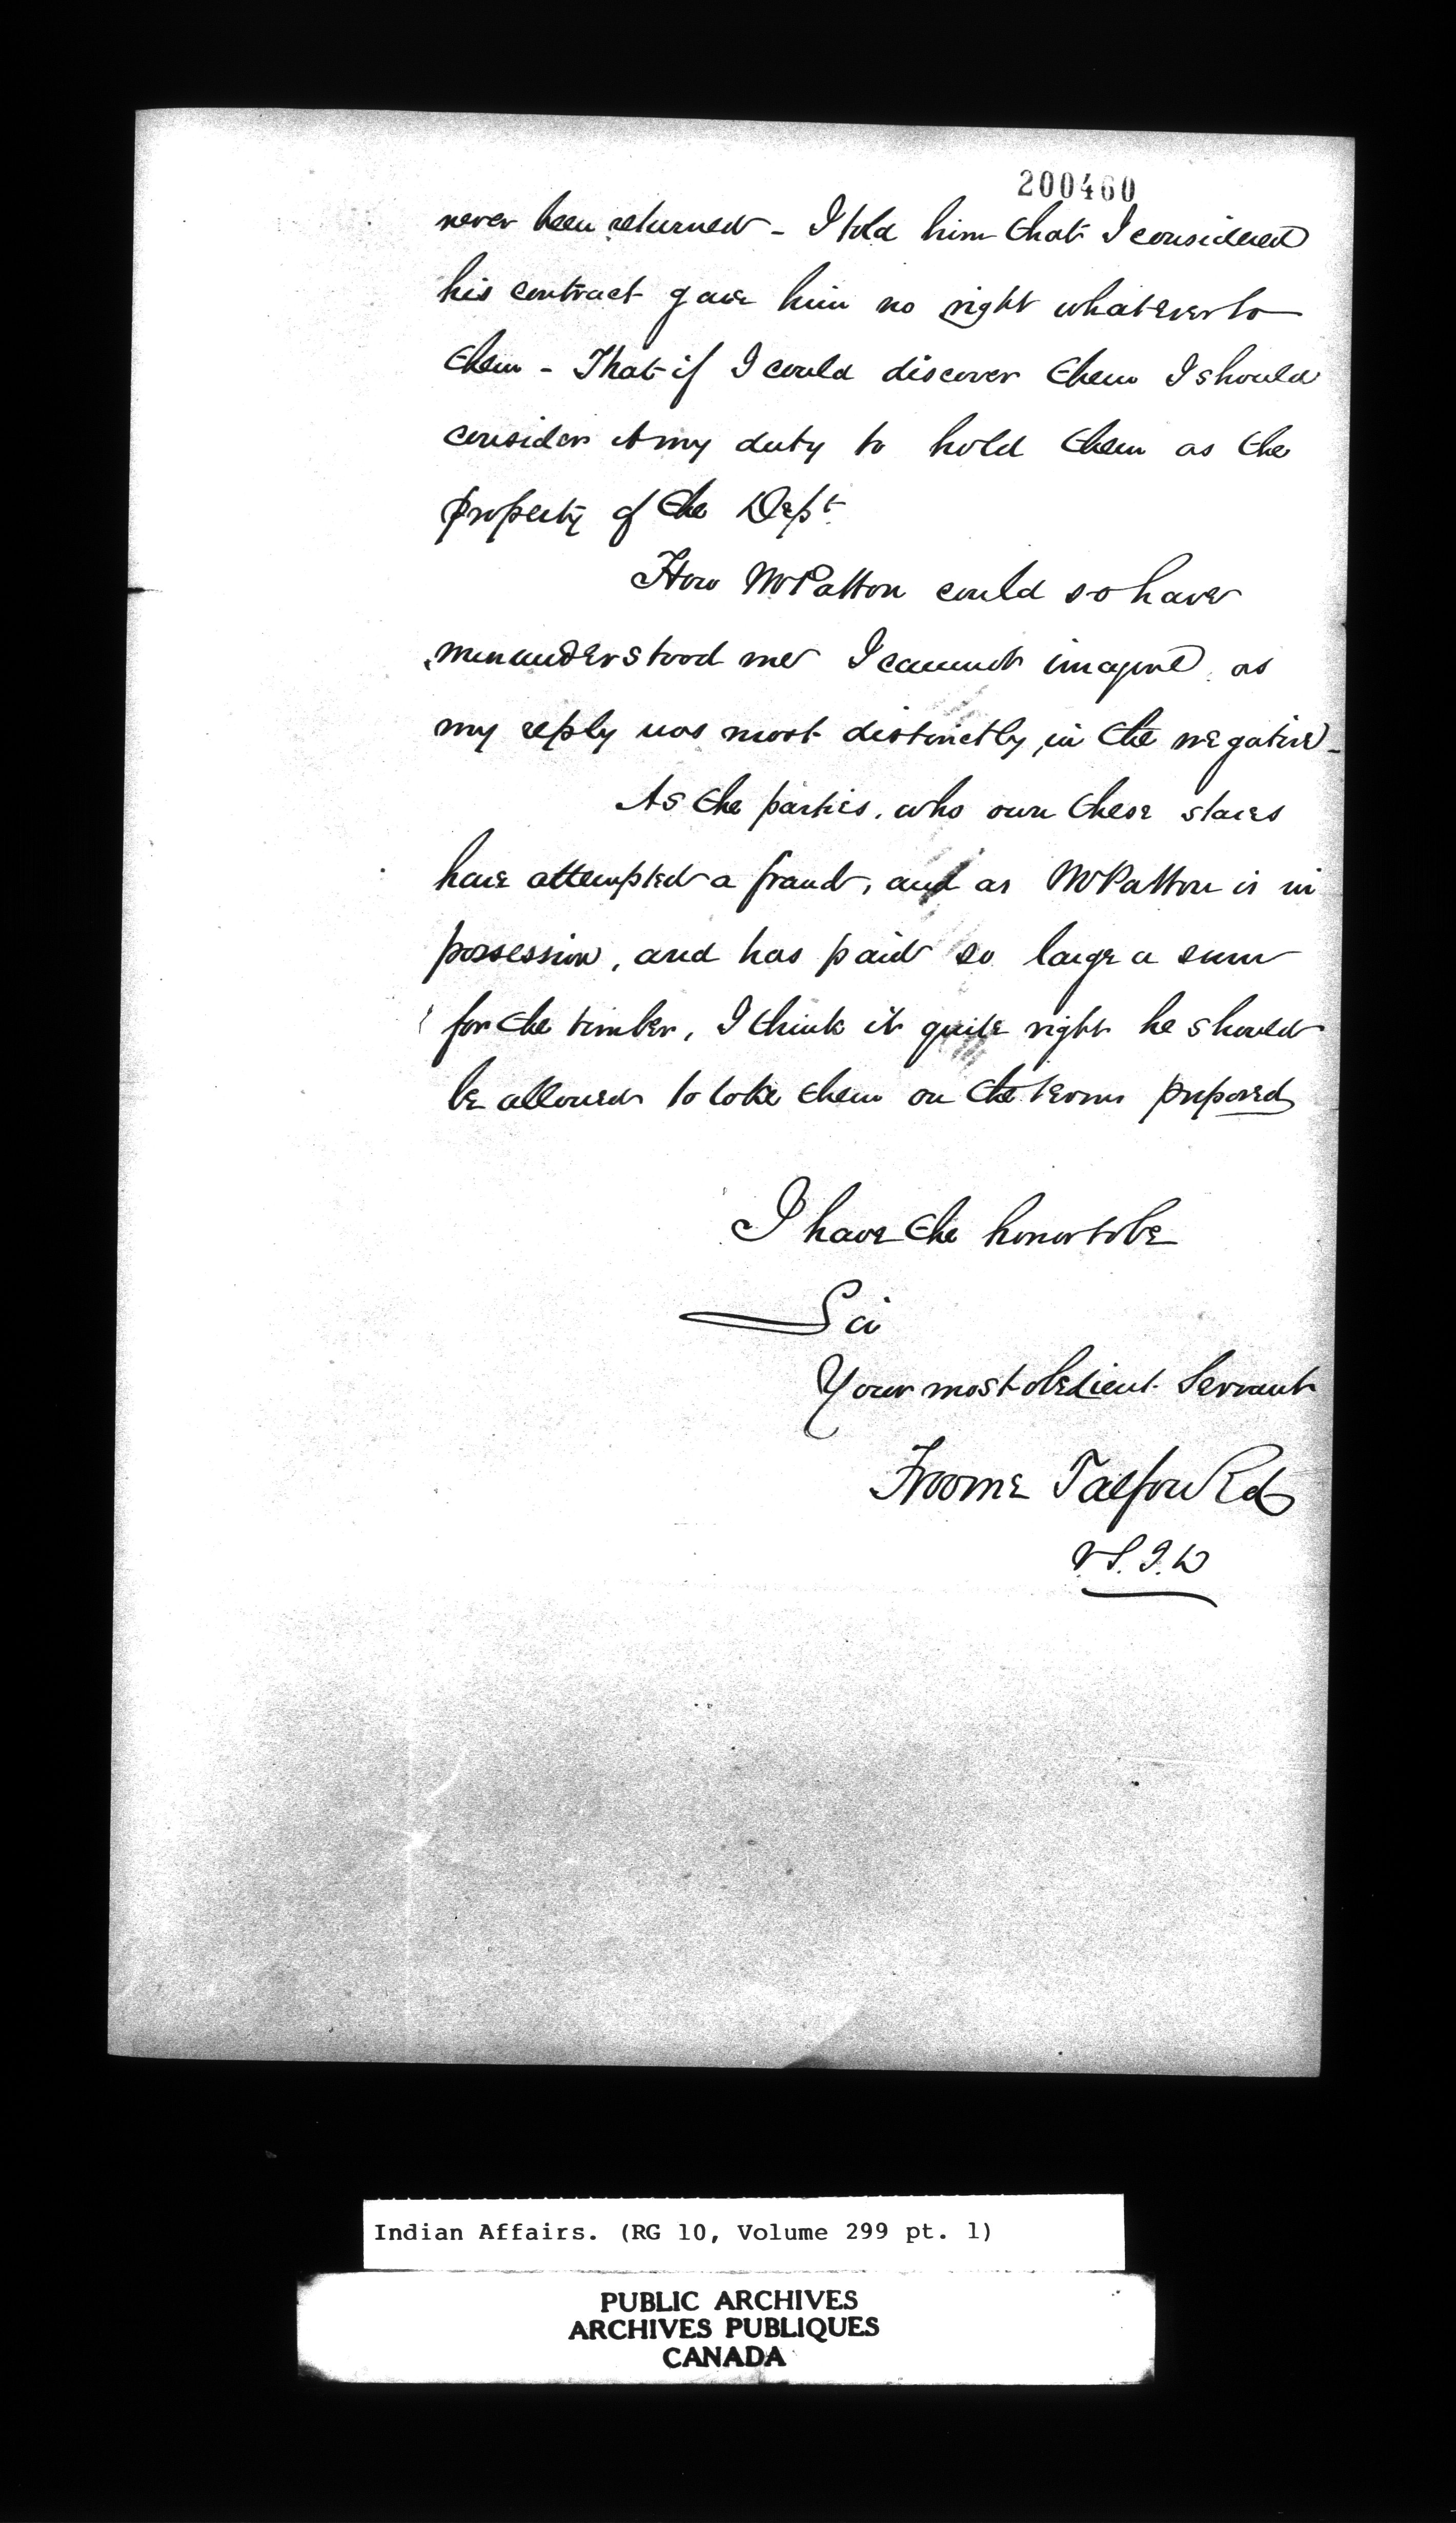 200460
never been returned - I told him that I considered
his contract gave him no right whatever to
them - That if I could discover them I should
consider it my duty to hold them as the
property of the Dept.
How Mr Patton could so have
misunderstood me I cannot imagine, as
my reply was most distinctly, in the negative -
As the parties, who own these staves
have attempted a fraud, and as Mr Patton is in
possession, and has paid so large a sum
for the timber, I think it quite right he should
be allowed to take them on the terms proposed
I have the honor to be
Sir
Your most obedient Servant
Froome Talfourd
V.S.I.A
Indian Affairs. (RG 10, Volume 299 pt. 1)
PUBLIC ARCHIVES
ARCHIVES PUBLIQUES
CANADA